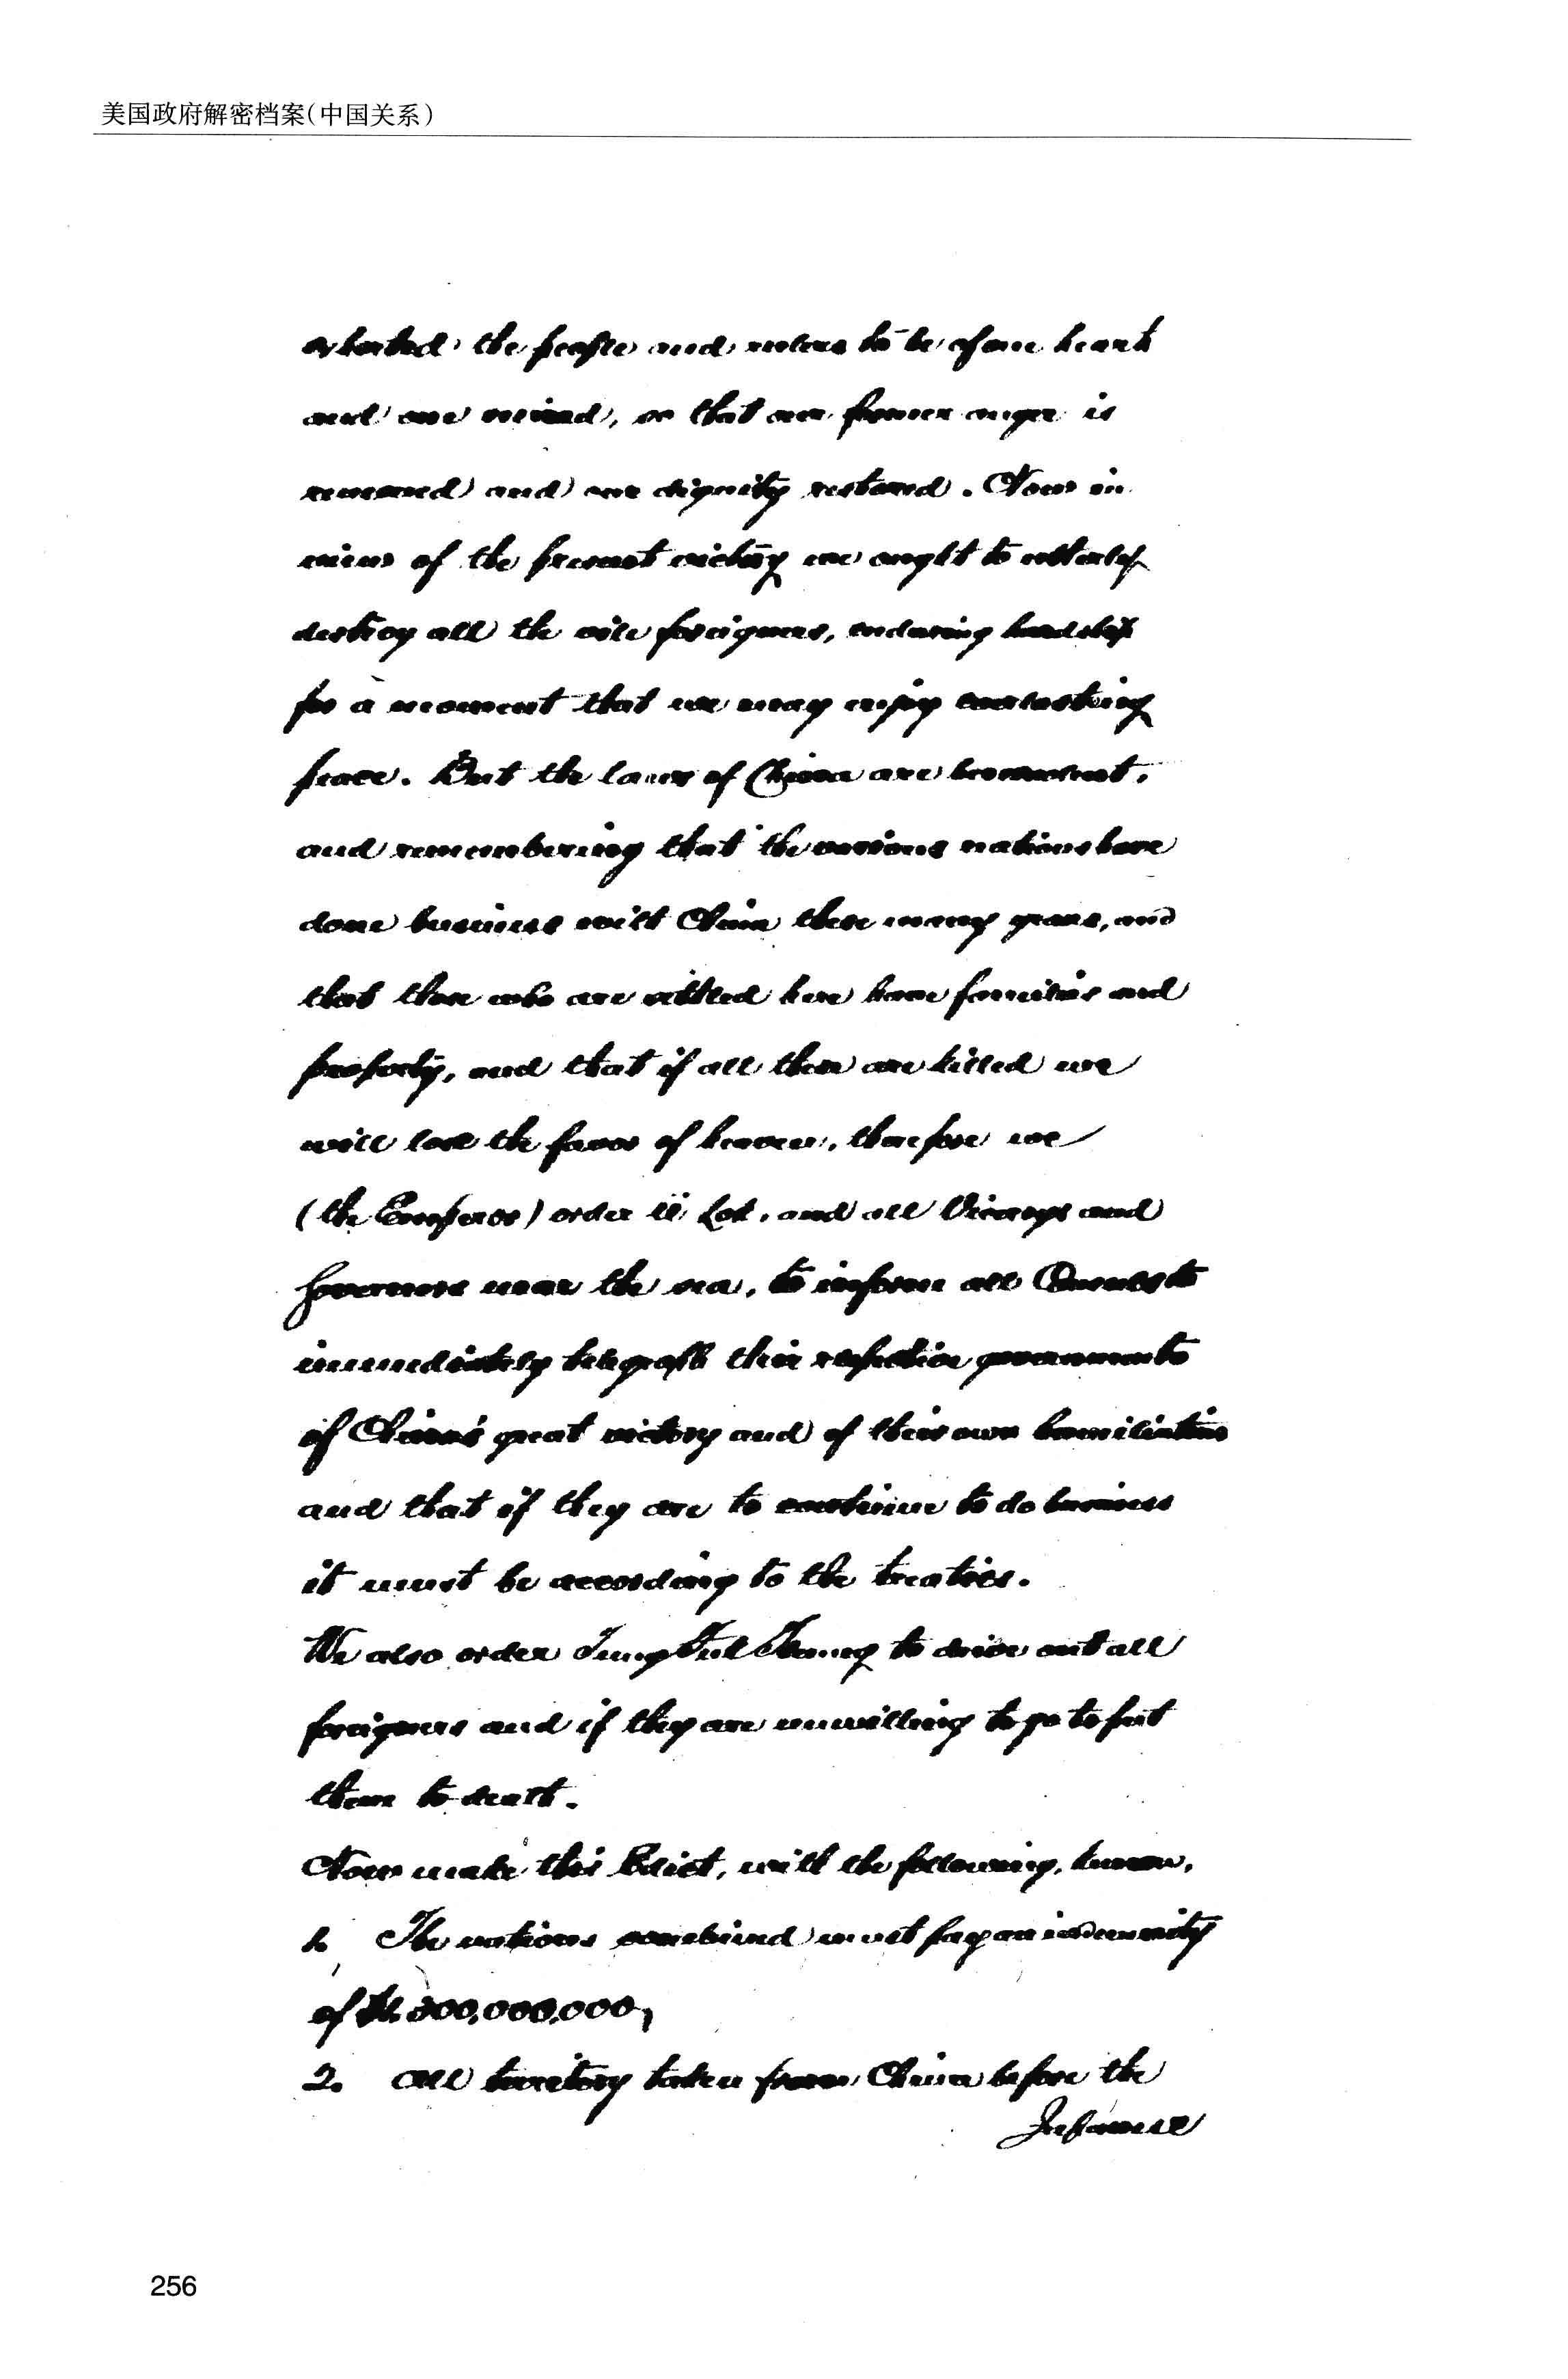 美国政府解密档案(中国关系)
exhorted the people and rulers to be of one heart
and one mind, so that our former anger is
removed and our dignity restored. Now in
view of the present victory we ought to utterly
destroy all the vile foreigners, enduring hardship
for a moment that we may enjoy everlasting
peace. But the laws of China are benevolent,
and remembering that the various nations have
done business with China these many years, and
that those who are settled here have families and
property, and that if all these are killed we
will lose the favor of heaven, therefore we
(the Emperor) order Lü Lot, and all Viceroys and
Governors near the sea, to inform all Consuls to
immediately telegraph their respective governments
of China's great victory and of their own humiliation
and that if they are to continue to do business
it must be according to the treaties.
We also order Tung Fuh Shang to drive out all
foreigners and if they are unwilling to go to put
them to death.
Now make this Edict, with the following, known,
1. The nations combined must pay an indemnity
of Tls. 300,000,000,
2. All territory taken from China before the
Japanese
256